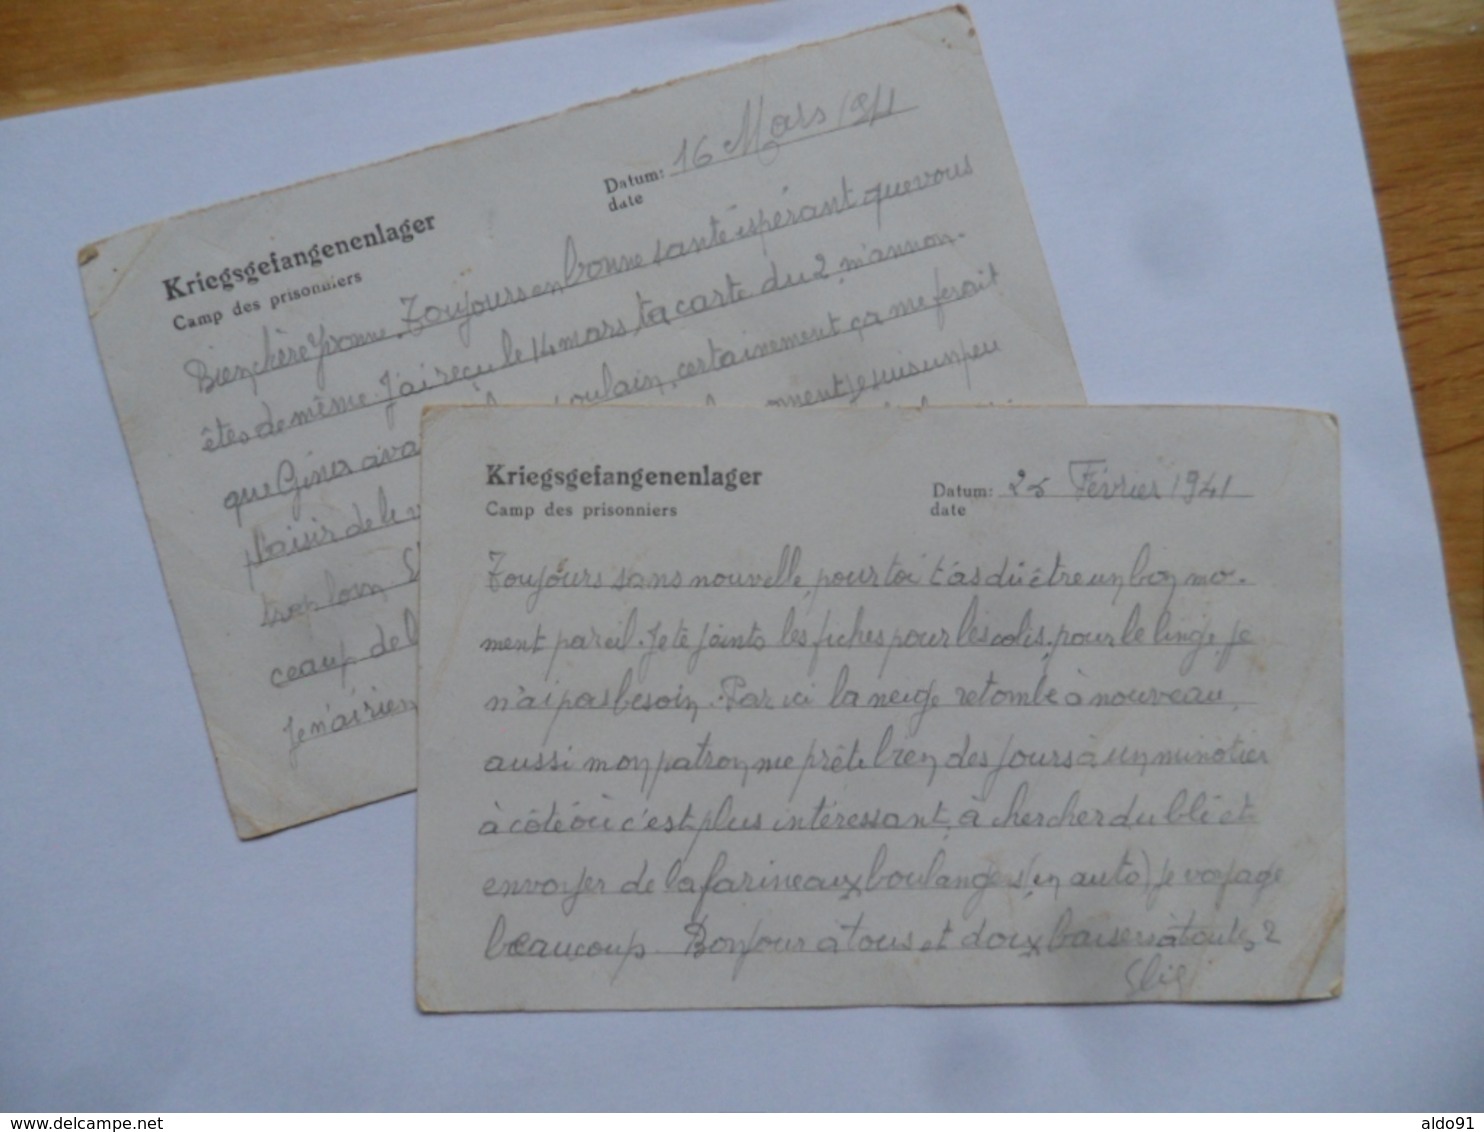 Kriegsgefangenenlager
Camp des prisonniers
Datum: 16 Mars 1941
date
Bien chère Yvonne. Toujours en bonne santé espérant que vous
êtes de même. J'ai reçu le 14 mars ta carte du 2, m'annon-
que Giner ava oulain, certainement ça me ferait
plaisir de le nnent je suis un peu
trop loin
ceaup de
Je n'ai rien
Kriegsgefangenenlager
Camp des prisonniers
Datum: 25 Février 1941
date
Toujours sans nouvelle, pour toi t'as dû être un bon mo-
ment pareil. Je te joints les fiches pour les colis, pour le linge, je
n'ai pas besoin. Par ici la neige retombe à nouveau,
aussi mon patron me prête bien des jours à un minotier
à côté où c'est plus intéressant, à chercher du blé et
envoyer de la farine aux boulangers (en auto) je voyage
beaucoup. Bonjour à tous et doux baisers à toutes 2
Elie
www.delcampe.net
aldo91